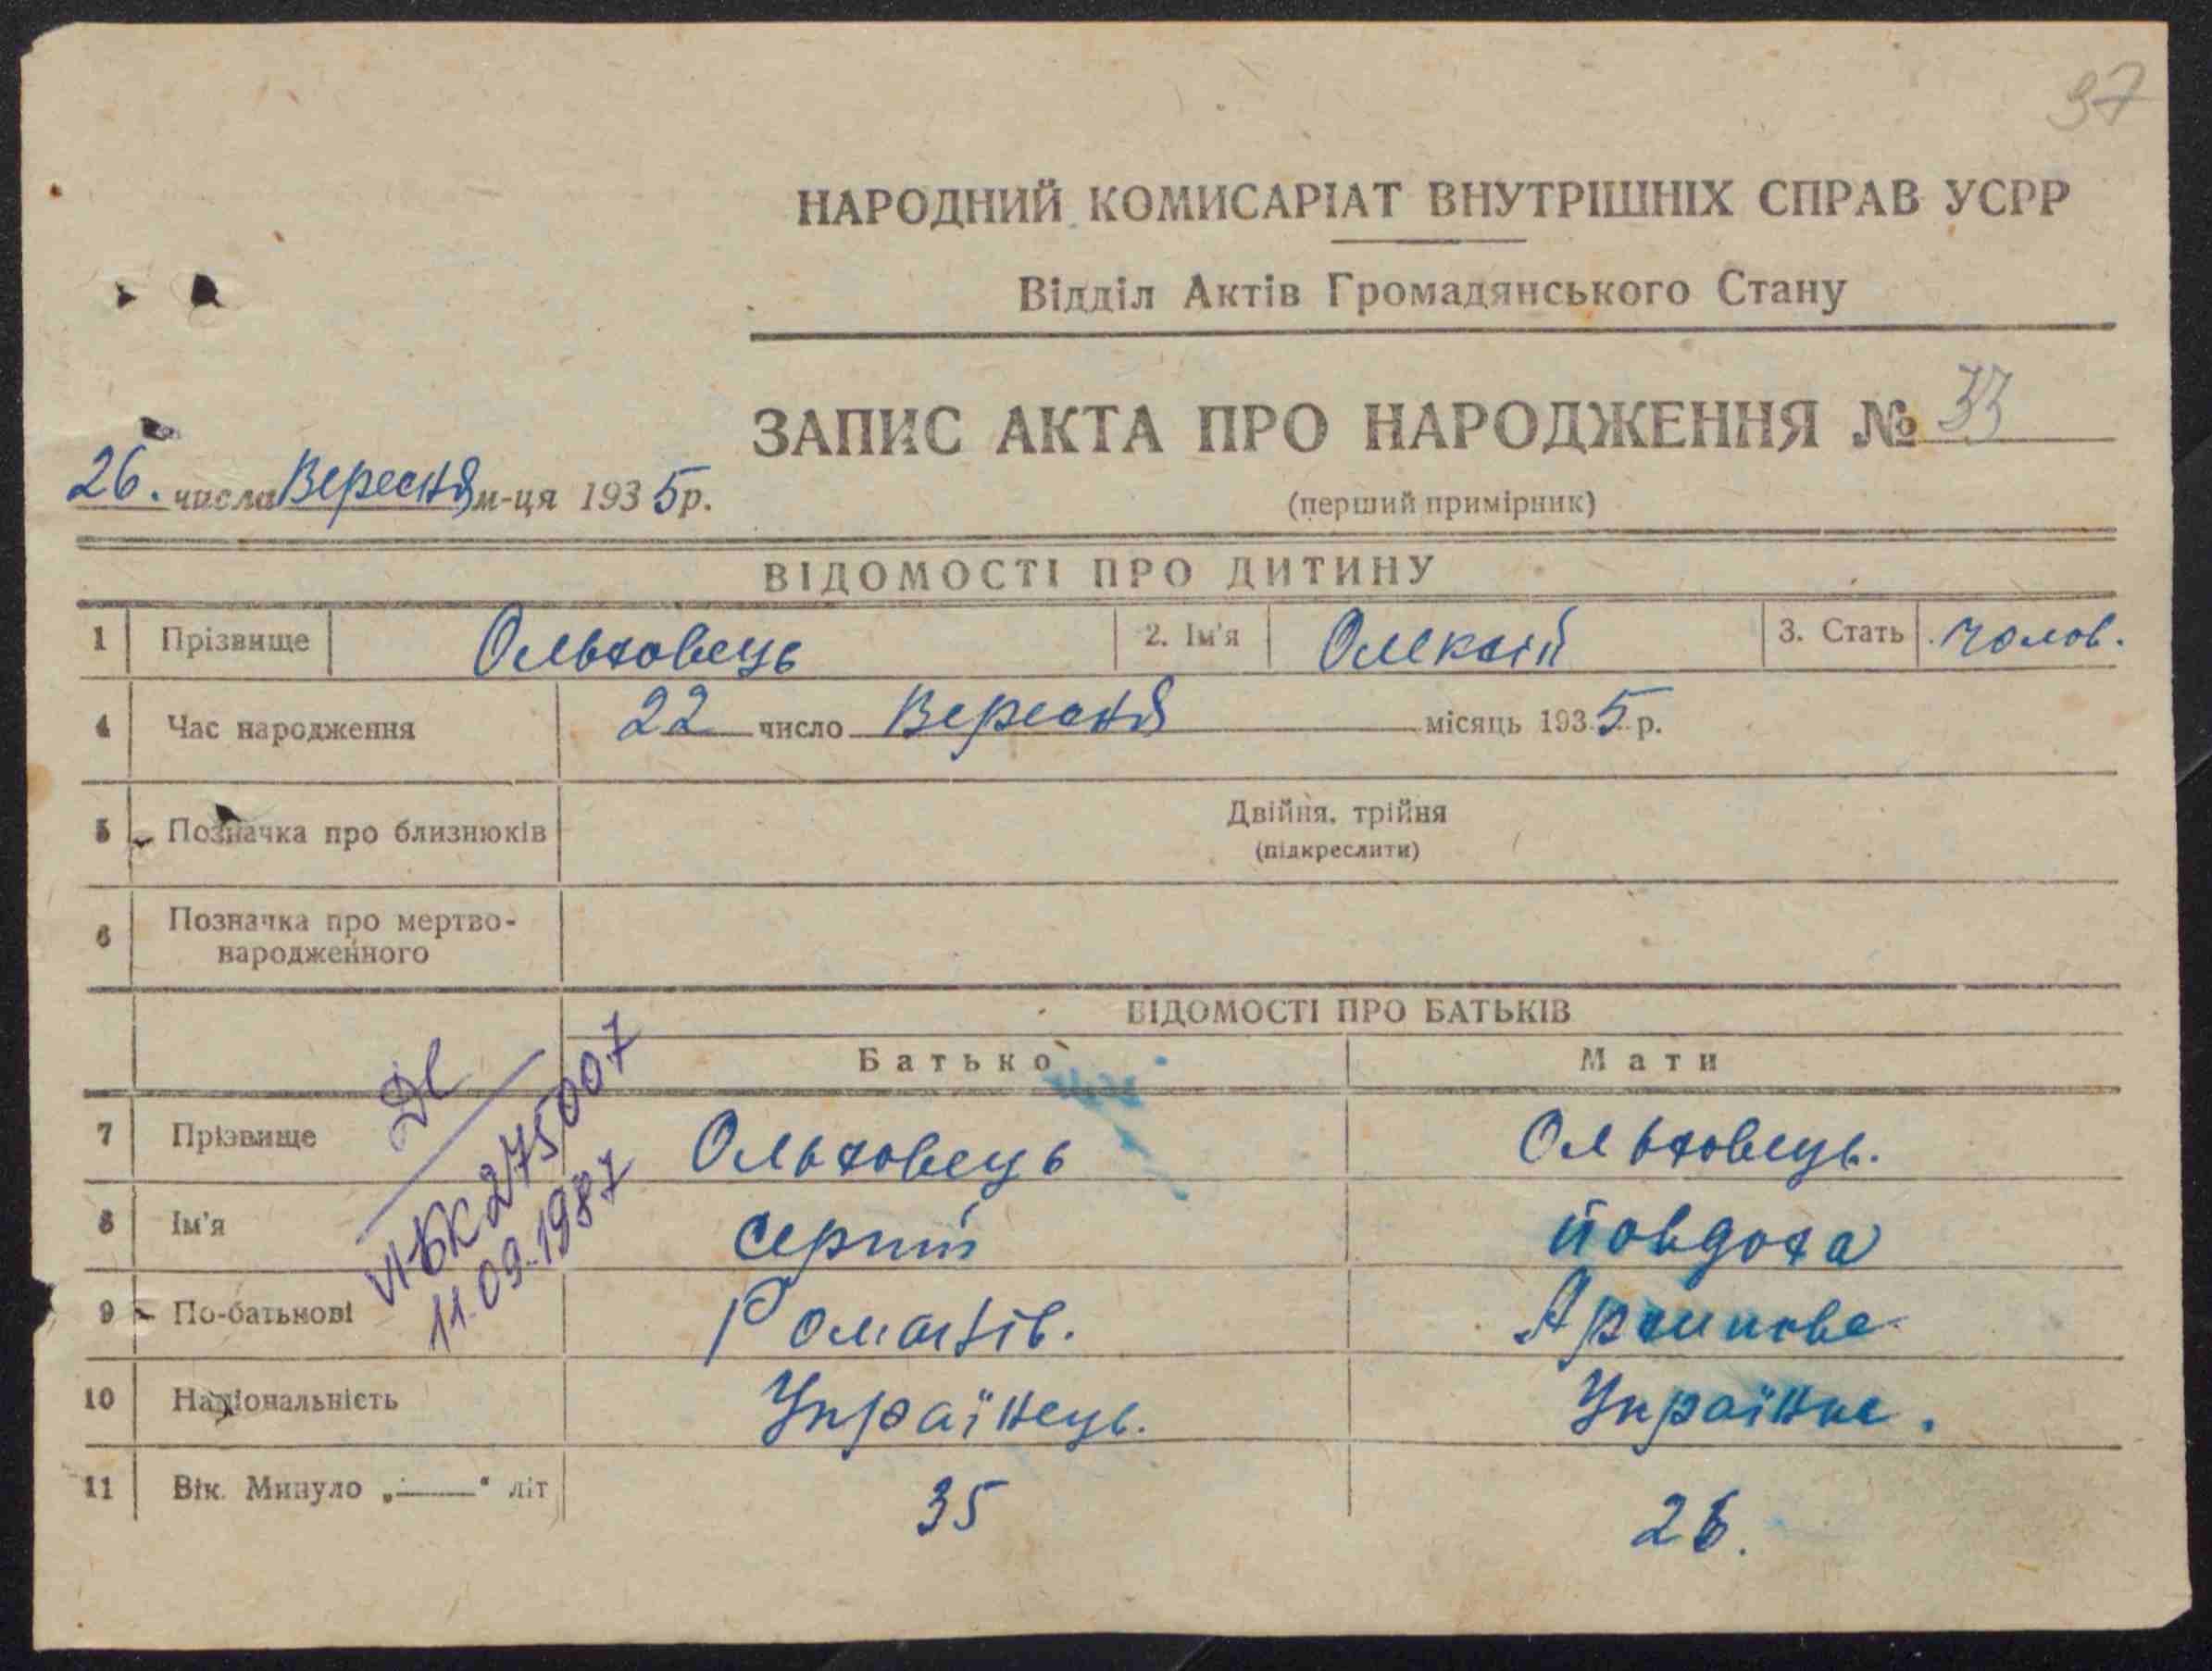 37
НАРОДНИЙ КОМИСАРІАТ ВНУТРІШНІХ СПРАВ УСРР
Відділ Актів Громадянського Стану
ЗАПИС АКТА ПРО НАРОДЖЕННЯ № 33
26. числа Вересня м-ця 1935 р.
(перший примірник)
ВІДОМОСТІ ПРО ДИТИНУ
1 Прізвище Ольховець 2. Ім'я Олексій 3. Стать чолов.
4 Час народження 22 число Вересня місяць 1935 р.
5 Позначка про близнюків Двійня, трійня
(підкреслити)
6 Позначка про мертво-
народженного
ВІДОМОСТІ ПРО БАТЬКІВ
Батько Мати
7 Прізвище Ольховець Ольховець.
8 Ім'я Сергій Йовдоха
9 По-батькові Романів.
10 Національність Українець. Українка.
11 Вік. Минуло „——“ літ 35 26.
VI-БК 275007
11.09.1987